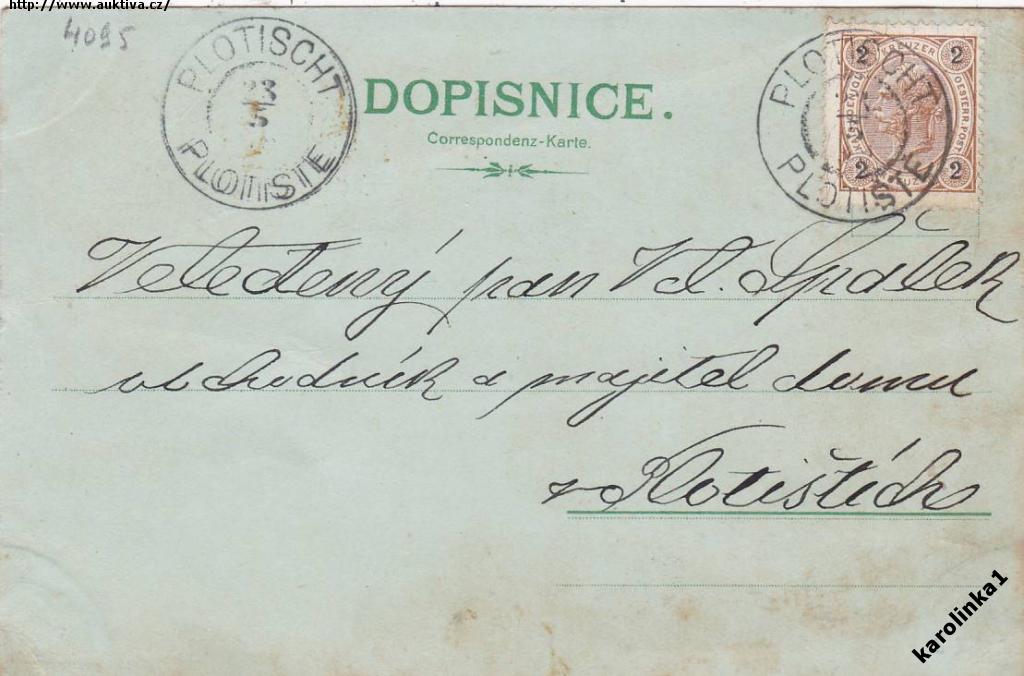 http://www.auktiva.cz/
4095
PLOTISCHT
23
5
PLOTIŠTĚ
DOPISNICE.
Correspondenz-Karte.
PLOTISCHT
PLOTIŠTĚ
2 KREUZER 2
OESTERR. POST
2 2
Velectěný pan Vl. Špálek
obchodník a majitel domu
v Plotištích
karolinka1